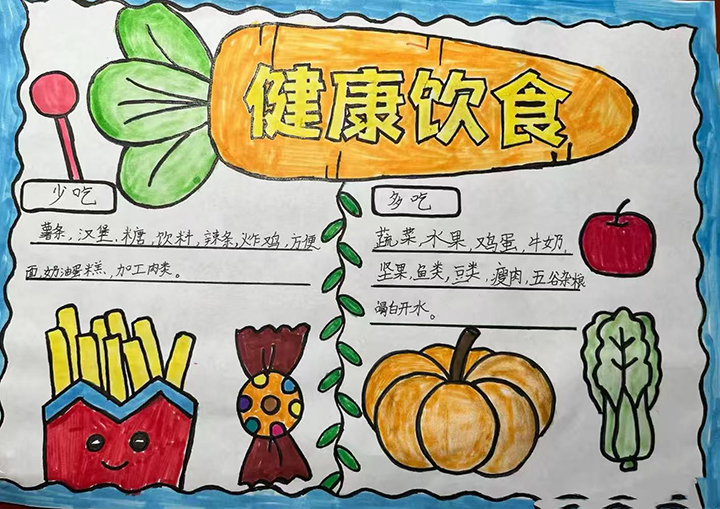 健康饮食
少吃
薯条,汉堡、糖,饮料,辣条,炸鸡,方便
面,奶油蛋糕,加工肉类。
多吃
蔬菜,水果,鸡蛋,牛奶,
坚果,鱼类,豆类,瘦肉,五谷杂粮
喝白开水。